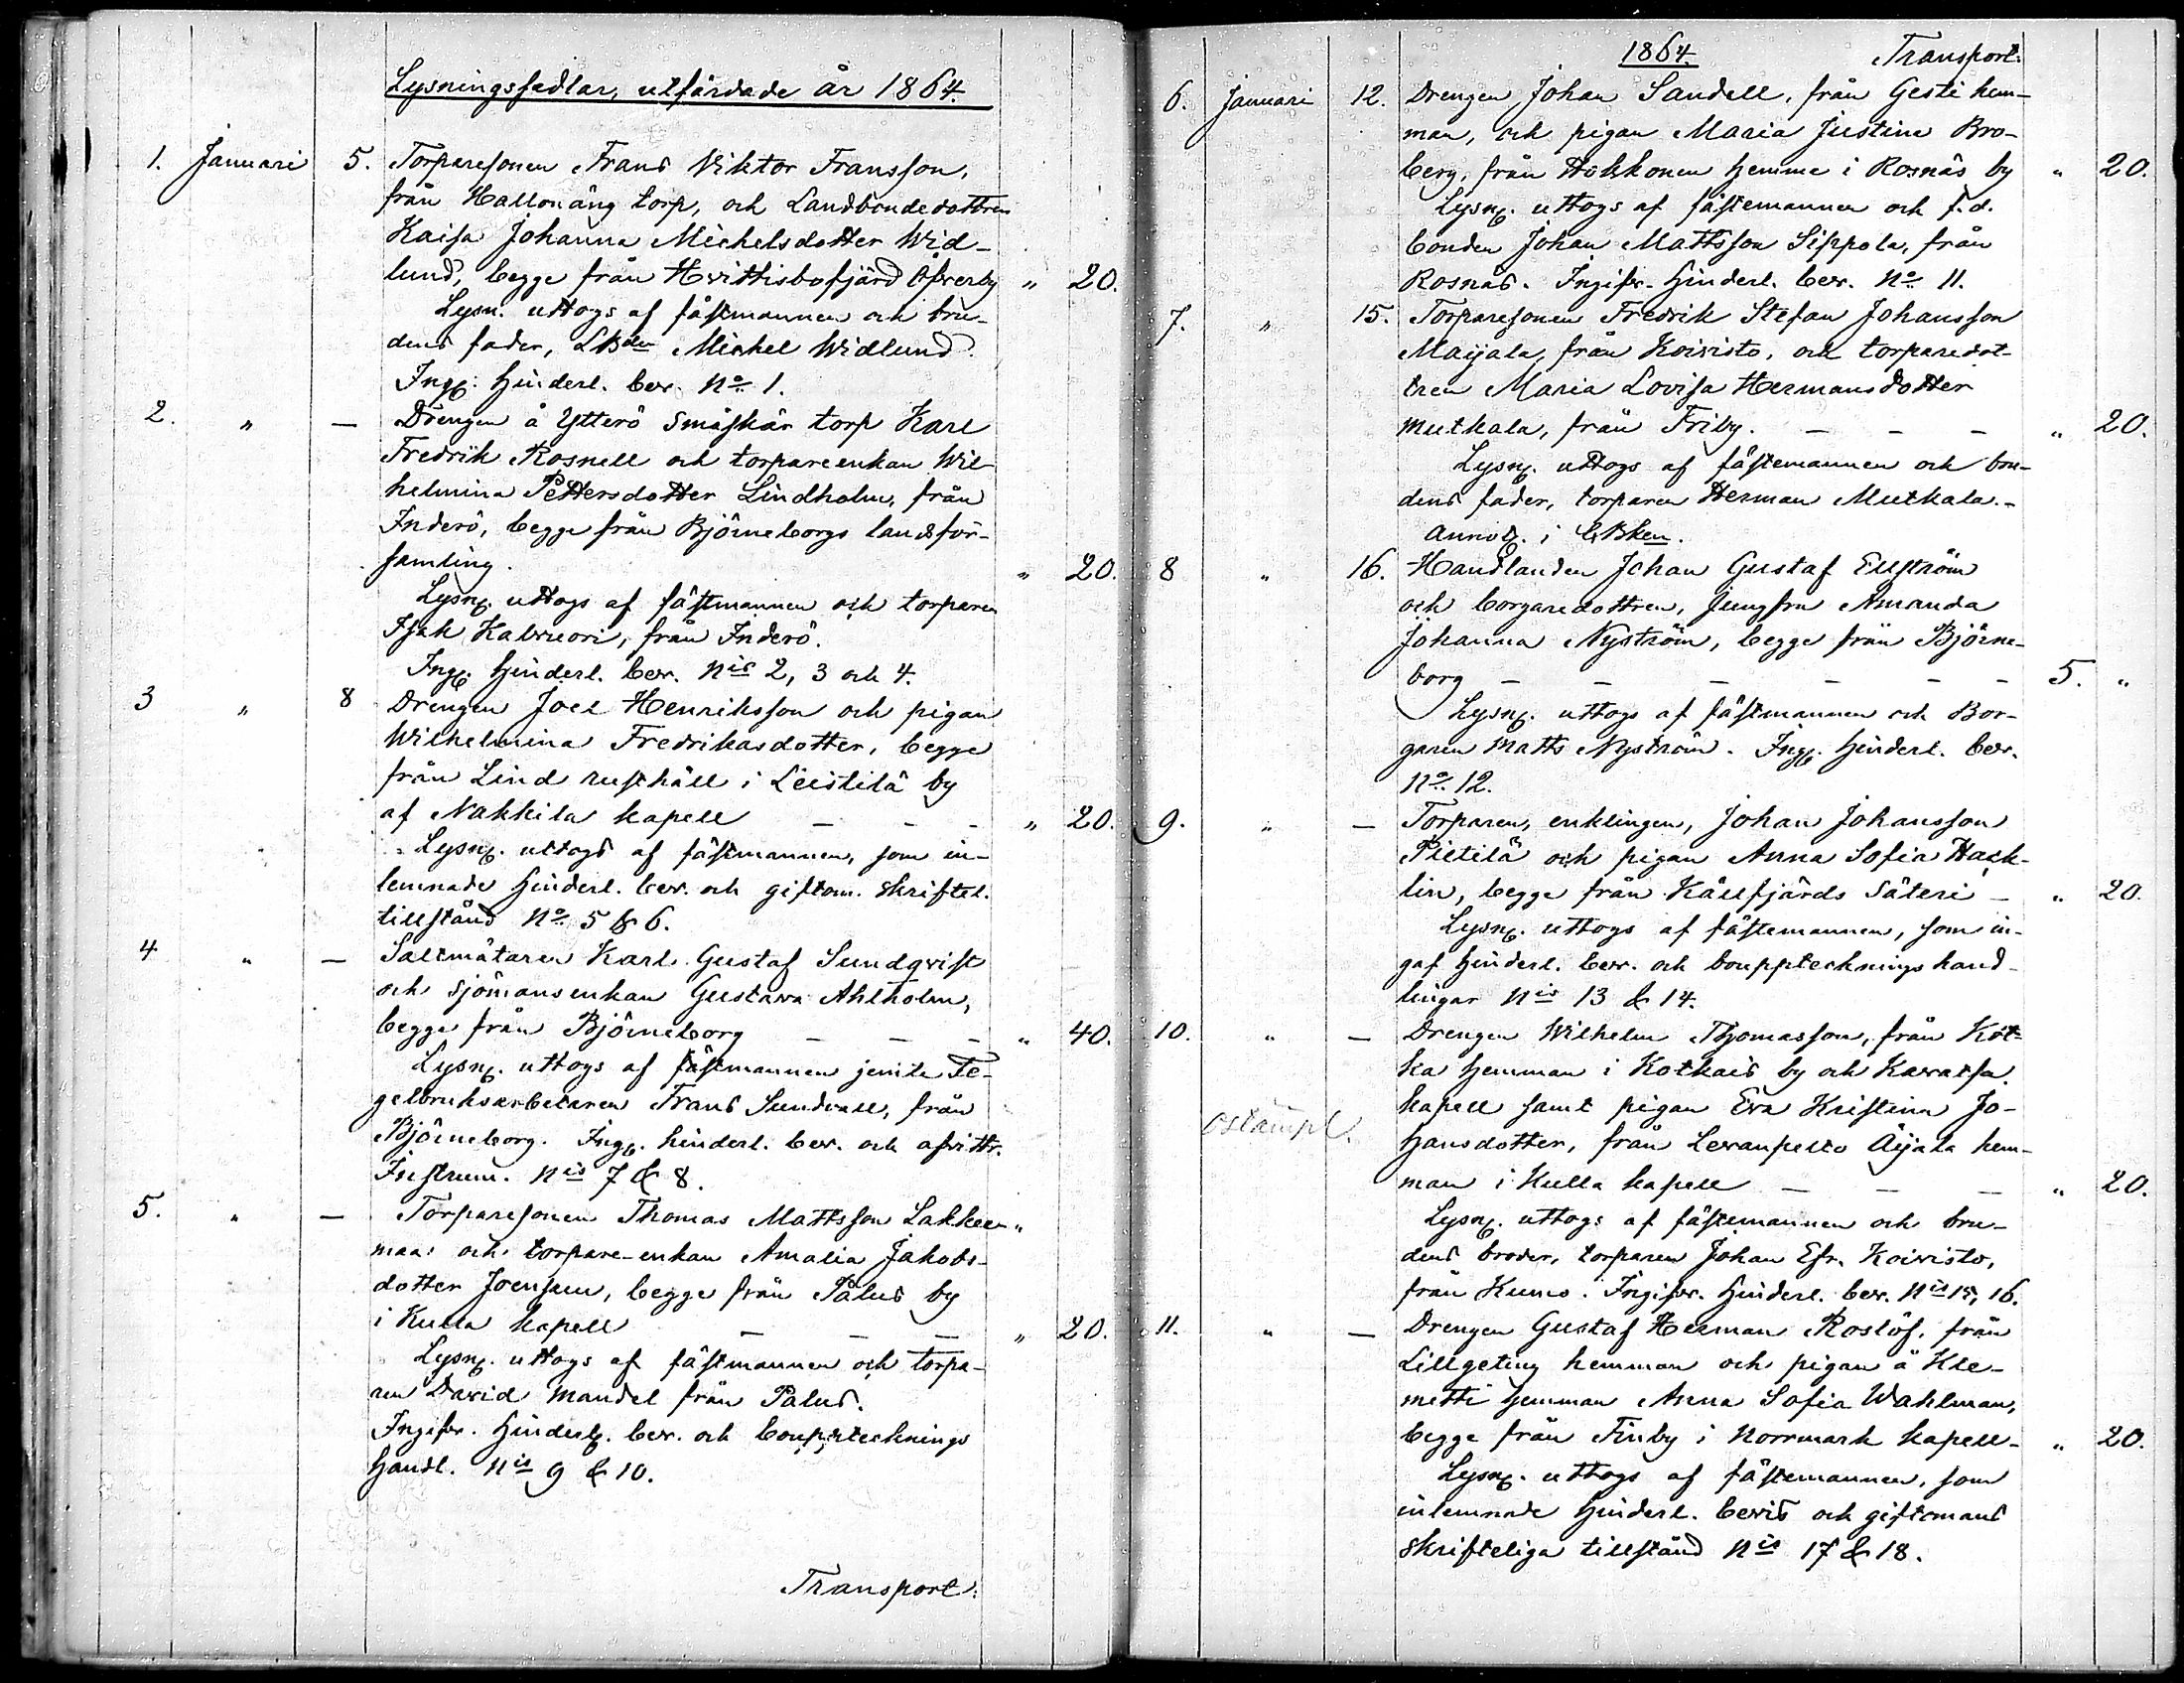 Lysningssedlar, utfärdade år 1864.
1. Januari 5. Torparesonen Frans Viktor Fransson,
från Hallonäng torp, och Landbondedottren
Kaisa Johanna Michelsdotter Wid-
lund, begge från Hvittisbofjärd Öfverby " 20.
Lysn. uttogs af fästmannen och bru-
dens fader, LBden Michel Widlund.
Ingg. hinderl. bev. No 1.
2. " — Drengen å Ytterö Småskär torp Karl
Fredrik Rosnell och torpareenkan Wil-
helmina Pettersdotter Lindholm, från
Inderö, begge från Björneborgs landsför-
samling. " 20.
Lysng. uttogs af fästmannen och torparen
Isak Kalvuori, från Inderö.
Ingg. hinderl. bev. Nis 2, 3 och 4.
3 " 8 Drengen Joel Henriksson och pigan
Wilhelmina Fredrikasdotter, begge
från Lind rusthåll i Leistilä by
af Nakkila kapell — — - " 20.
Lysng. uttogs af fästmannen, som in-
lemnade hinderl. bev. och giftom. skriftel.
tillstånd No 5 & 6.
4 " — Saltmätaren Karl Gustaf Sundqvist
och sjömansenkan Gustava Ahlholm,
begge från Björneborg — — - " 40.
Lysng. uttogs af fästmannen jemte Te-
gelbruksarbetaren Frans Sundvall, från
Björneborg. Ingg. hinderl. bev. och afvittr.
Instrum. Nis 7 & 8.
5. " — Torparesonen Thomas Mattsson Lakkeen-
maa och torpare-enkan Amalia Jakobs-
dotter Joensuu, begge från Pålus by
i Kulla kapell — — — " 20.
Lysng. uttogs af fästmannen och torpa-
ren David Mandel från Palus.
Ingifv. hinderlg. bev. och bouppteckningshandl. Nis 9 & 10.
Transport.
1864. Transport:
6. Januari 12. Drengen Johan Sandell, från Gesti hem-
man, och pigan Maria Justina Bro-
berg, från Hukkonen hemma i Rosnäs by " 20.
Lysng. uttogs af fästemannen och f.d.
bonden Johan Mattsson Sippola, från
Rosnäs. Ingifv. hinderl. bev. No 11.
7. " 15. Torparesonen Fredrik Stefan Johansson
Maijala, från Koivisto, och torparedot-
tren Maria Lovisa Hermansdotter
Mutkala, från Friby. — — — " 20.
Lysng. uttogs af fästemannen och bru-
dens fader, torparen Herman Mutkala.-
Annot. i LBken.
8 " 16. Handlanden Johan Gustaf Ellström
och borgaredottren, Jungfru Amanda
Johanna Nyström, begge från Björne-
borg — — — — — - 5. "
Lysng. uttogs af fästmannen och Bor-
garen Matts Nyström. Ingg. hinderl. bev.
No 12.
9. " — Torparen, enklingen, Johan Johansson
Pietilä och pigan Anna Sofia Hack-
lin, begge från Källfjärds Säteri — " 20.
Lysng. uttogs af fästemannen, som in-
gaf hinderl. bev. och bouppteckningshand-
lingar Nis 13 & 14.
10. " — Drengen Wilhelm Thomasson, från Kot-
ka hemman i Kotkais by och Kavatsa
ostämpl. kapell samt pigan Eva Kristina Jo-
hansdotter, från Levanpelto Äijala hem-
man i Kulla kapell — — — " 20.
Lysng. uttogs af fästemannen och bru-
dens broder, torparen Johan Efr. Koivisto,
från Kumo. Ingifv. hinderl. bev. Nis 15, 16.
11. " — Drengen Gustaf Herman Roslöf, från
Lillgeting hemman och pigan å Kle-
metti hemman Anna Sofia Wahlman,
begge från Finby i Norrmark kapell - " 20.
Lysng. uttogs af fästemannen, som
inlemnade hinderl. bevis och giftomans
skrifteliga tillstånd Nis 17 & 18.